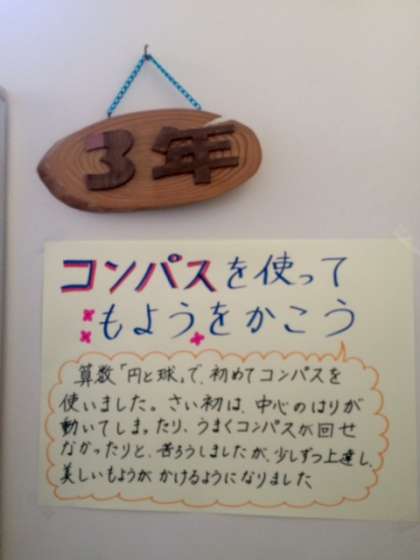 3年
コンパスを使って
もようをかこう
算数「円と球」で、初めてコンパスを
使いました。さい初は、中心のはりが
動いてしまったり、うまくコンパスが回せ
なかったりと、苦ろうしましたが、少しずつ上達し、
美しいもようがかけるようになりました